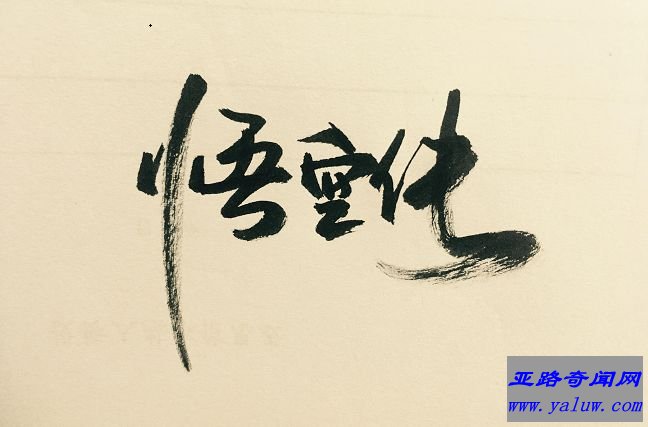 悟空传
亚路奇闻网
www.yaluw.com